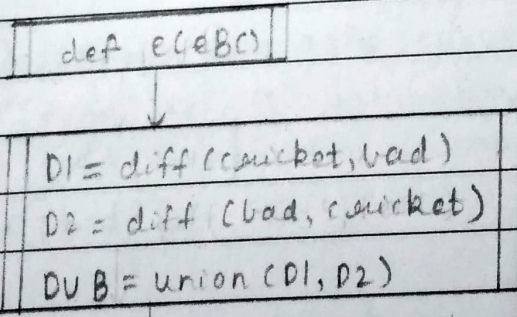 def eCeBC()
D1 = diff (cricket, bad)
D2 = diff (bad, cricket)
DUB = union (D1, D2)